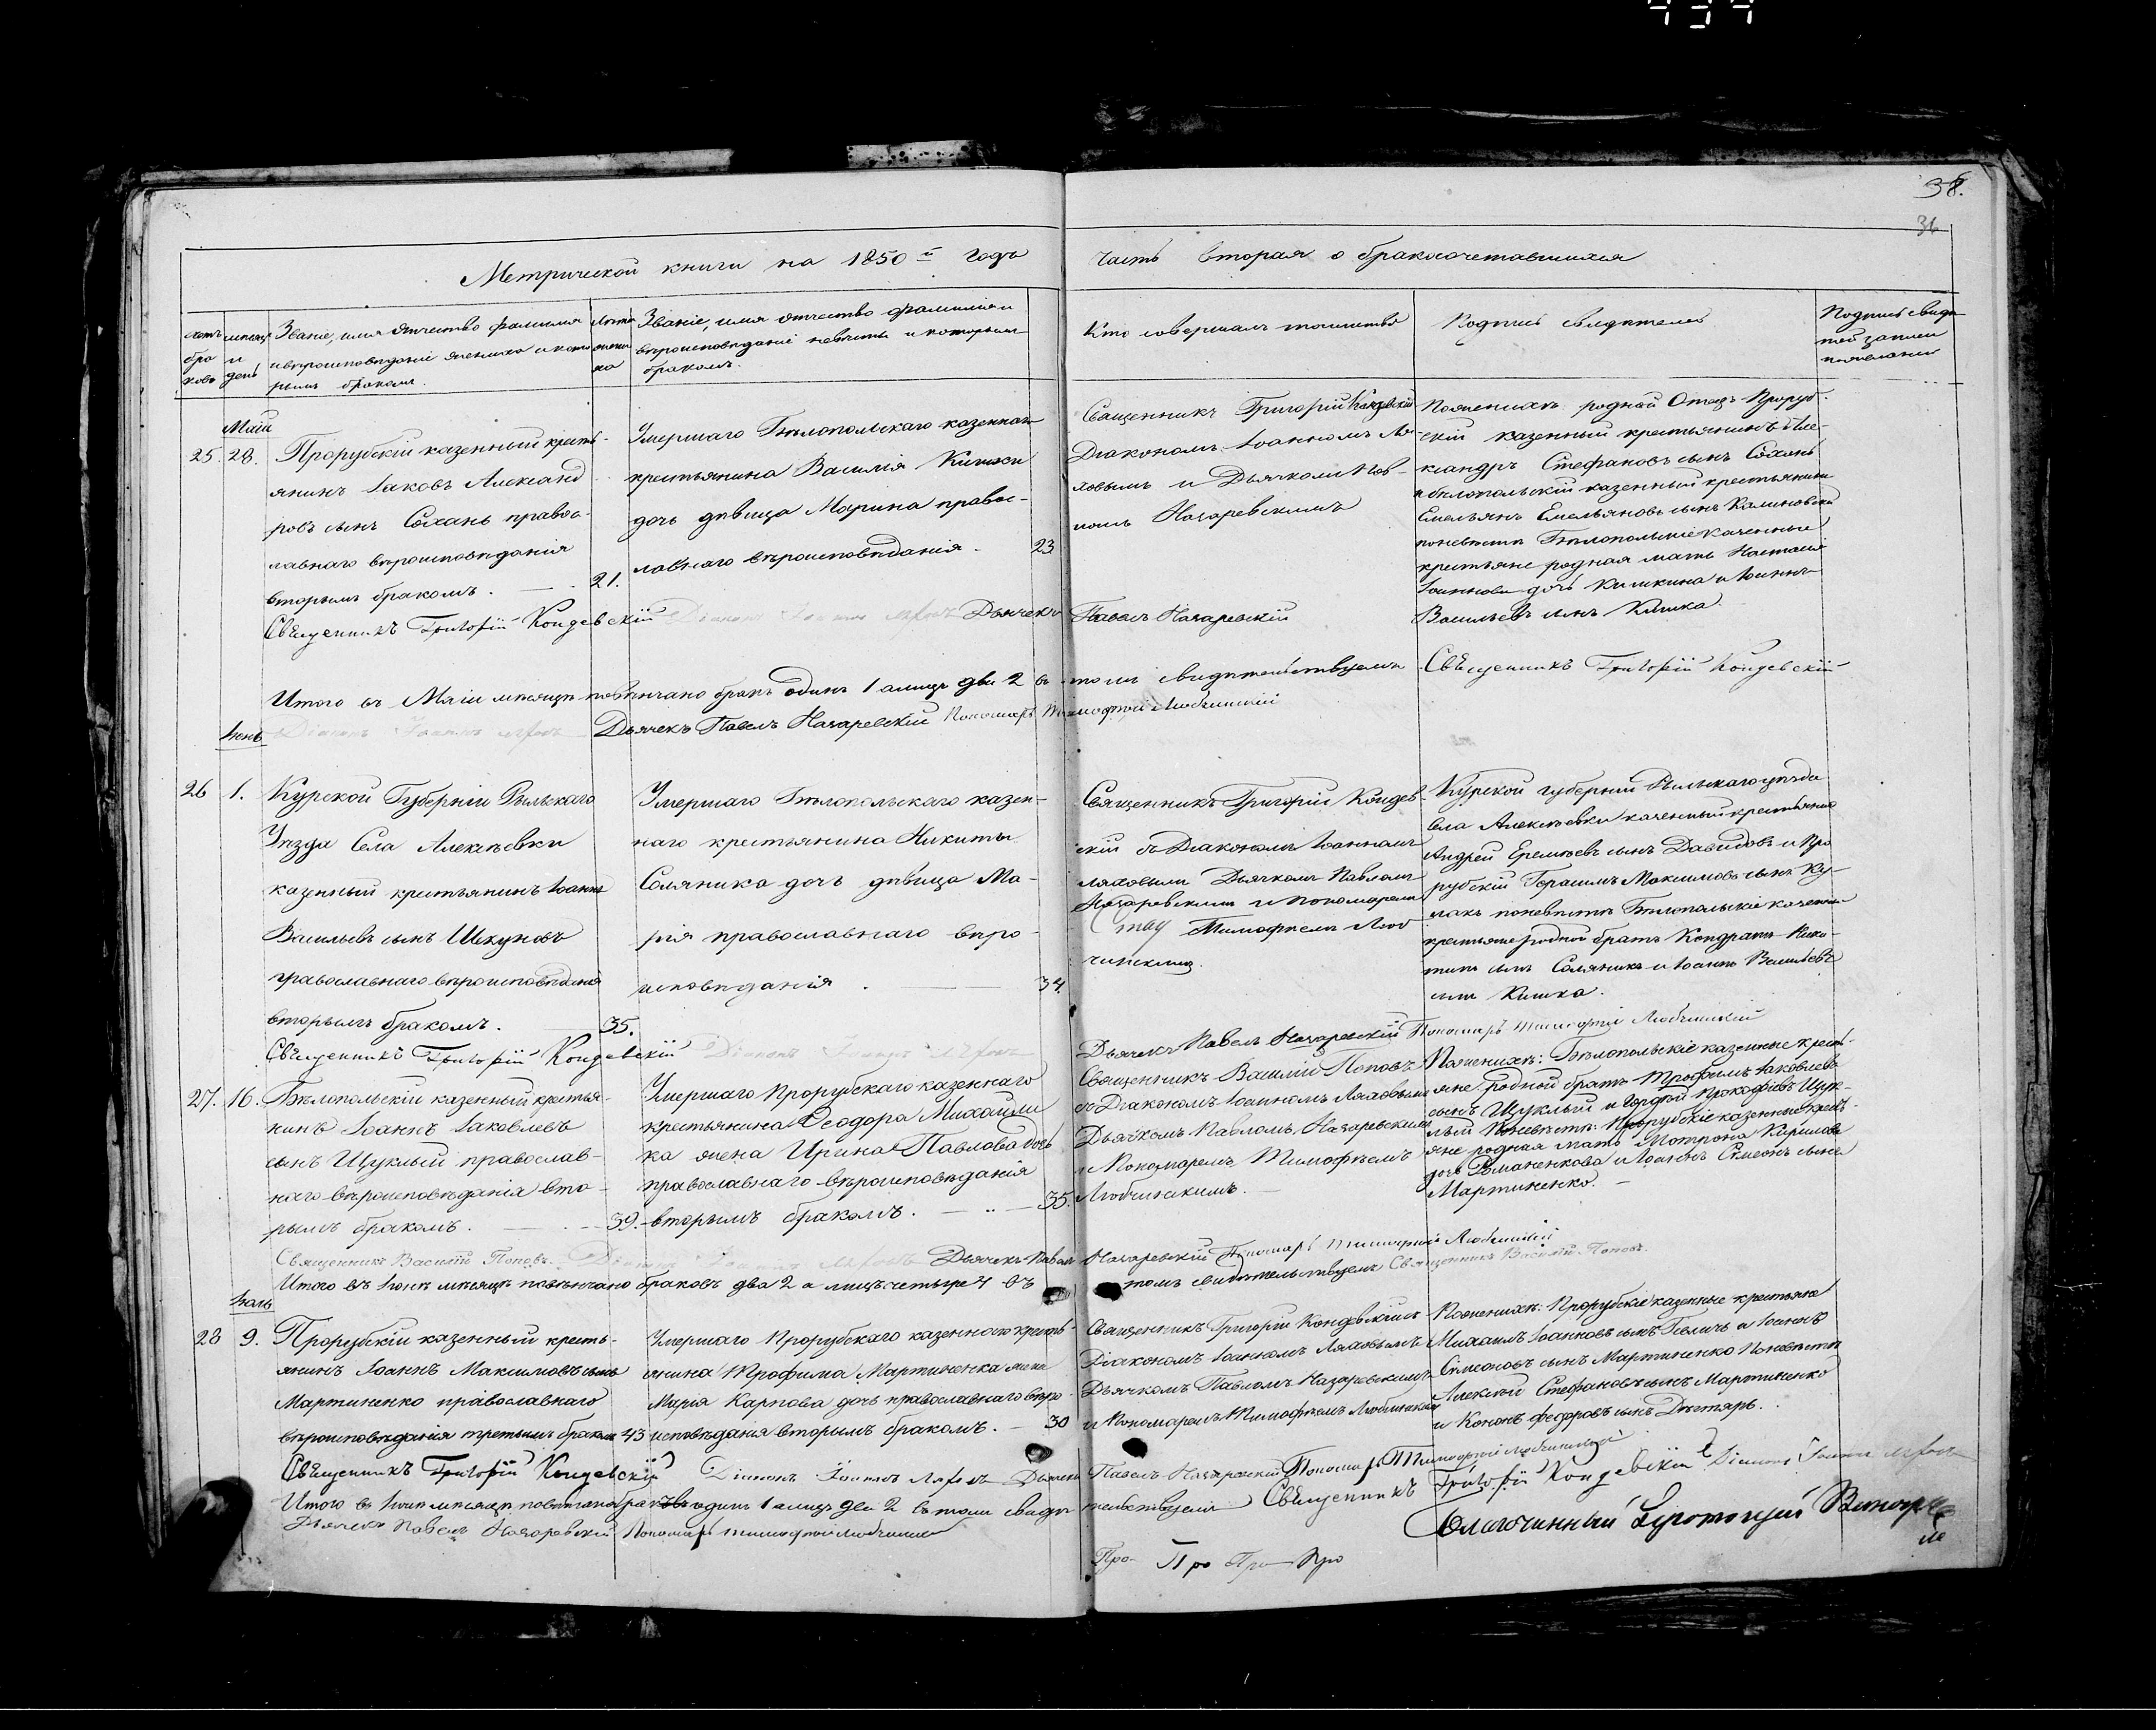 38.
36
Метрической книги на 1850й годъ
Часть вторая о бракосочетавшихся
Званіе, имя отчество фамилія
и вероисповѣданіе жениха и кото
рымъ бракомъ.
Лѣта
жени
ха
Званіе, имя отчество фамилія и
вѣроисповѣданіе невѣсты и которымъ
бракомъ.
Кто совершалъ таинство
Подпись свидѣтелей
Маій
25. 28.
Прорубскій казенный кресть-
янинъ Іаковъ Александ
ровъ сынъ Сохань правос-
лавнаго вѣроисповѣданія
вторымъ бракомъ. — 21.
Умершаго Бѣлопольскаго казеннаго
крестьянина Василія Кишки
дочь дѣвица Марина правос-
лавнаго вѣроисповѣданія - 23
Священникъ Григорій Кондевскій
Діакономъ Іоанномъ Ля-
ховымъ и Дьячкомъ Пав-
ломъ Назаревскимъ
Поженихѣ родной Отецъ Проруб-
скій казенный крестьянинъ Але-
ксандръ Стефановъ сынъ Сохань
и бѣлопольскій казенный крестьянинъ
Емельянъ Емельяновъ сынъ Калиновскій
поневѣстѣ Бѣлопольскіе казенные
крестьяне родная мать Настасія
Іоаннова дочь Кишкина и Іоаннъ
Васильевъ сынъ Кишка
Свѣщенникъ Григорій Кондевскій Діаконъ Іоаннъ Ляховъ Дьячекъ Павелъ Назаревскій
Итого въ Маіи мѣсяцѣ повѣнчано бракъ одинъ 1 а лицъ два 2 въ томъ свидѣтельствуемъ Свѣщенникъ Григорій Кондевскій
Діаконъ Іоаннъ Ляховъ Дьячекъ Павелъ Назаревскій Пономарь Тимофей Любчинскій
Іюнь
26 1.
Курской Губерніи Рыльскаго
Уѣзда Села Алексѣевки
казенный крестьянинъ Іоаннъ
Васильевъ сынъ Шекуновъ
православнаго вѣроисповѣданія
вторымъ бракомъ. 35.
Умершаго Бѣлопольскаго казен-
наго крестьянина Никиты
Соляника дочь дѣвица Ма-
рія православнаго вѣро-
исповѣданія. — 34.
Священникъ Григорій Кондев-
скій съ Діакономъ Іоанномъ
Ляховымъ Дьячкомъ Павломъ
Назаревскимъ и пономаремъ
Тимофѣемъ Люб
чинскимъ.
Курской губерніи Рыльскаго уѣзда
села Алексѣевки казенный крестьянинъ
Андрей Еремѣевъ сынъ Давидовъ и Про
рубскій Герасимъ Максимовъ сынъ Ку-
лакъ поневѣстѣ Бѣлопольскіе казенные
крестьяне родной братъ Кондратъ Ники-
тинъ сынъ Соляникъ и Іоаннъ Васильевъ
сынъ Кишка.
Свѣщенникъ Григорій Кондевскій Діаконъ Іоаннъ Ляховъ Дьячекъ Павелъ Назаревскій Пономарь Тимофей Любчинскій
27. 16.
Бѣлопольскій казенный крестья-
нинъ Іоаннъ Іаковлевъ
сынъ Щуклый православ-
наго вѣроисповѣданія вто-
рымъ бракомъ. — 39.
Умершаго Прорубскаго казеннаго
крестьянина Ѳеодора Михайли
ка жена Ирина Павлова дочь
православнаго вѣроисповѣданія
вторымъ бракомъ. — 35.
Священникъ Василій Поповъ
съ Діакономъ Іоанномъ Ляховымъ
Дьячкомъ Павломъ Назаревскимъ
и Пономаремъ Тимофѣемъ
Любчинскимъ. —
Поженихѣ: Бѣлопольскіе казенные кресть-
яне родной братъ Трофимъ Іаковлевъ
сынъ Щуклый и Гордѣй Прокофіевъ Щук-
лый Поневѣстѣ: Прорубскіе казенные кресть-
яне родная мать Мотрона Кирилова
дочь Романенкова и Іоаннъ Симеонъ сынъ
Мартиненко. —
Священникъ Василій Поповъ. Діаконъ Іоаннъ Ляховъ Дьячекъ Павелъ Назаревскій Пономарь Тимофей Любчинскій
Итого въ Іюнѣ мѣсяцѣ повѣнчано браковъ два 2 а лицъ четыре 4 въ томъ свидѣтельствуемъ Священникъ Василій Поповъ.
Іюль
28 9.
Прорубскій казенный кресть-
янинъ Іоаннъ Максимовъ сынъ
Мартиненко православнаго
вѣроисповѣданія третьимъ бракомъ 43
Умершаго Прорубскаго казеннаго кресть-
янина Трофима Мартиненка жена
Марія Карпова дочь православнаго вѣро-
исповѣданія вторымъ бракомъ. — 30
Священникъ Григорій Кондевскій съ
Діакономъ Іоанномъ Ляховымъ
Дьячкомъ Павломъ Назаревскимъ
и Пономаремъ Тимофѣемъ Любчинскимъ
Поженихѣ: Прорубскіе казенные крестьяне
Михаилъ Іоанновъ сынъ и Іоаннъ
Симеоновъ сынъ Мартиненко Поневѣстѣ
Алексѣй Стефановъ сынъ Мартиненко
и Кононъ Федоровъ сынъ Дегтярь.
Свѣщенникъ Григорій Кондевскій Діаконъ Іоаннъ Ляховъ Дьячекъ Павелъ Назаревскій Пономарь Тимофей Любчинскій
Итого въ Іюлѣ мѣсяцѣ повѣнчано бракъ одинъ 1 а лицъ два 2 въ томъ свидѣтельствуемъ Свѣщенникъ Григорій Кондевскій Діаконъ Іоаннъ Ляховъ
Дьячекъ Павелъ Назаревскій Пономарь Тимофей Любчинскій
Благочинный Протоіерей
Про Про Про Про